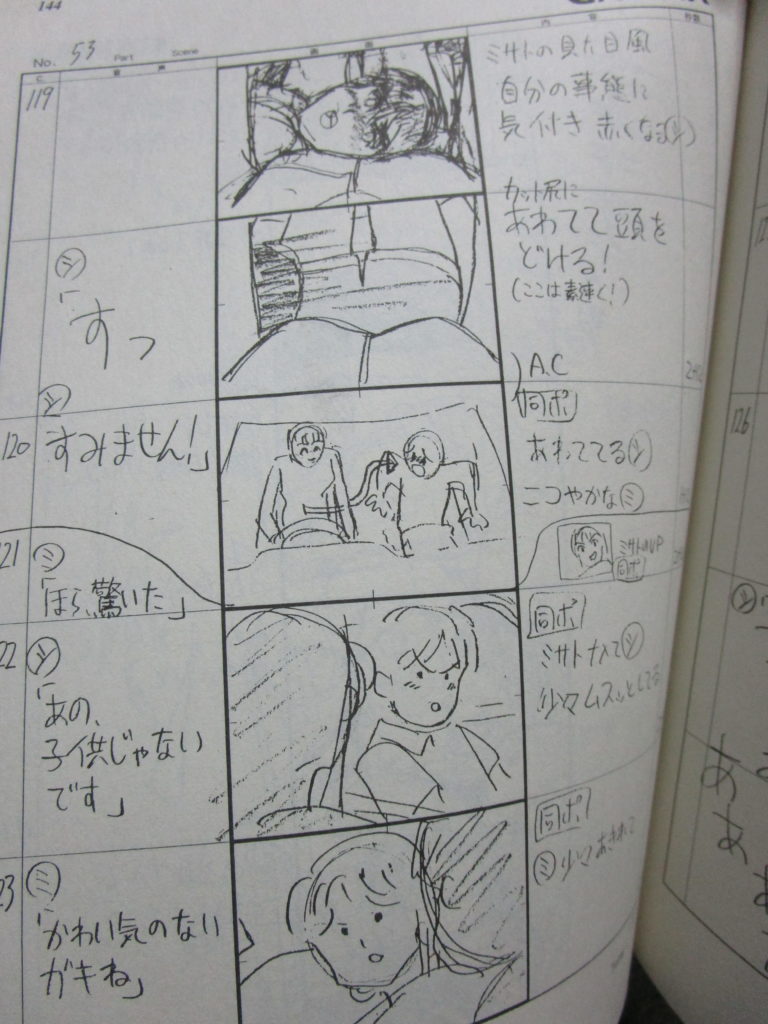 144
No. 53 Part Scene
C
119
ミサトの見た目風
自分の事態に
気付き 赤くなるシ
カット尻に
あわてて頭を
どける!
(ここは素速く!)
シ
「すっ
A.C
120
シ
すみません!」
同ポ
あわててるシ
にこやかなミ
121
ミ
「ほら、驚いた」
ミサトのUP
同ポ
22
シ
「あの、
子供じゃない
です」
同ポ
ミサトナメてシ
少々ムスッとしてる
23
ミ
「かわい気のない
ガキね」
同ポ
ミ少々あきれて
126
あ
あ